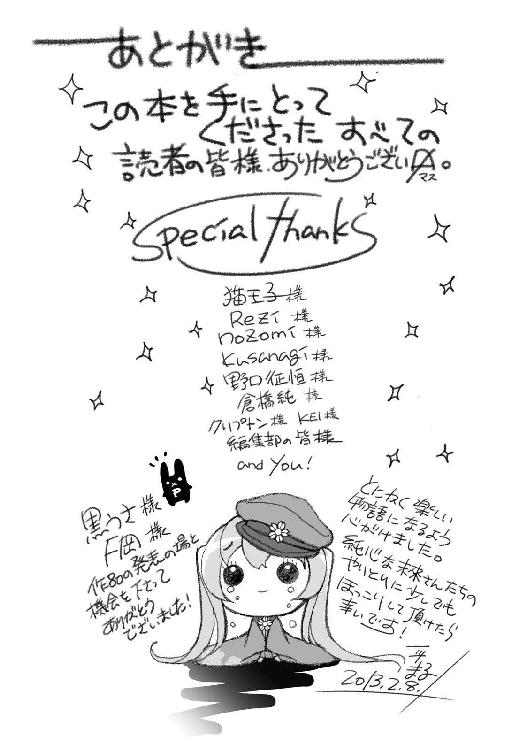 あとがき
この本を手にとって
くださった すべての
読者の皆様、ありがとうござい〼。
マス
Special thanks
猫王子 様
Rezi 様
nozomi 様
kusanagi 様
野口征恒 様
倉橋純 様
クリプトン 様 KEI 様
編集部の皆様
and you!
黒うさ 様
下岡 様
作品の発表の場と
機会を下さって
ありがとう
ございました!
とにかく楽しい
物語になるよう
心がけました。
純心な未來さんたちの
やりとりに少しでも
ほっこりして頂けたら
幸いです!
まる
2013.2.8.